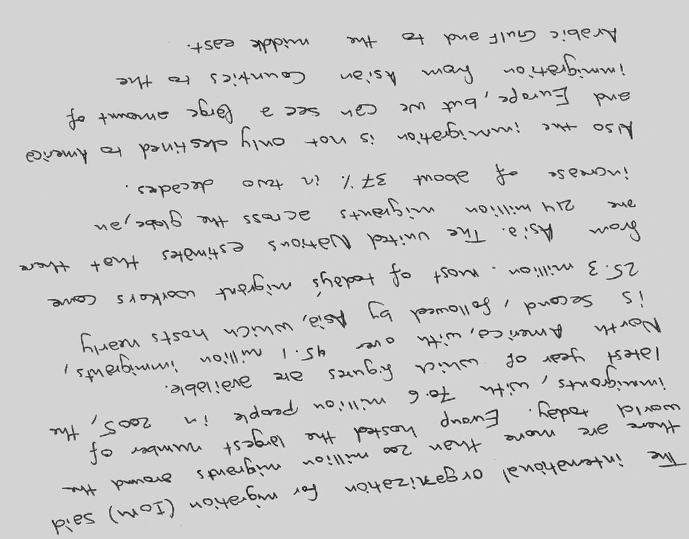 The international organization for migration (IOM) said
there are more than 200 million migrants around the
world today. Europ hosted the largest number of
immigrants, with 70.6 million people in 2005, the
latest year of which figures are available.
North America, with over 45.1 million immigrants,
is second, followed by Asia, which hosts nearly
25.3 million. most of today's migrant workers come
from Asia. The united Nations estimates that there
are 214 million migrants across the globe, an
increase of about 37% in two decades.
Also the immigration is not only destined to America
and Europe, but we can see a large amount of
immigration from Asian Counties to the
Arabic Gulf and to the middle east.